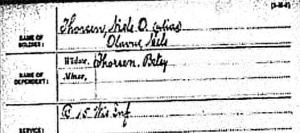 (3-M-6)
NAME OF SOLDIER: Thorsen, Niels O. (alias
Olavus, Niels
NAME OF DEPENDENT: Widow, Thorsen, Betsy
Minor,
SERVICE: 15 Wis Inf